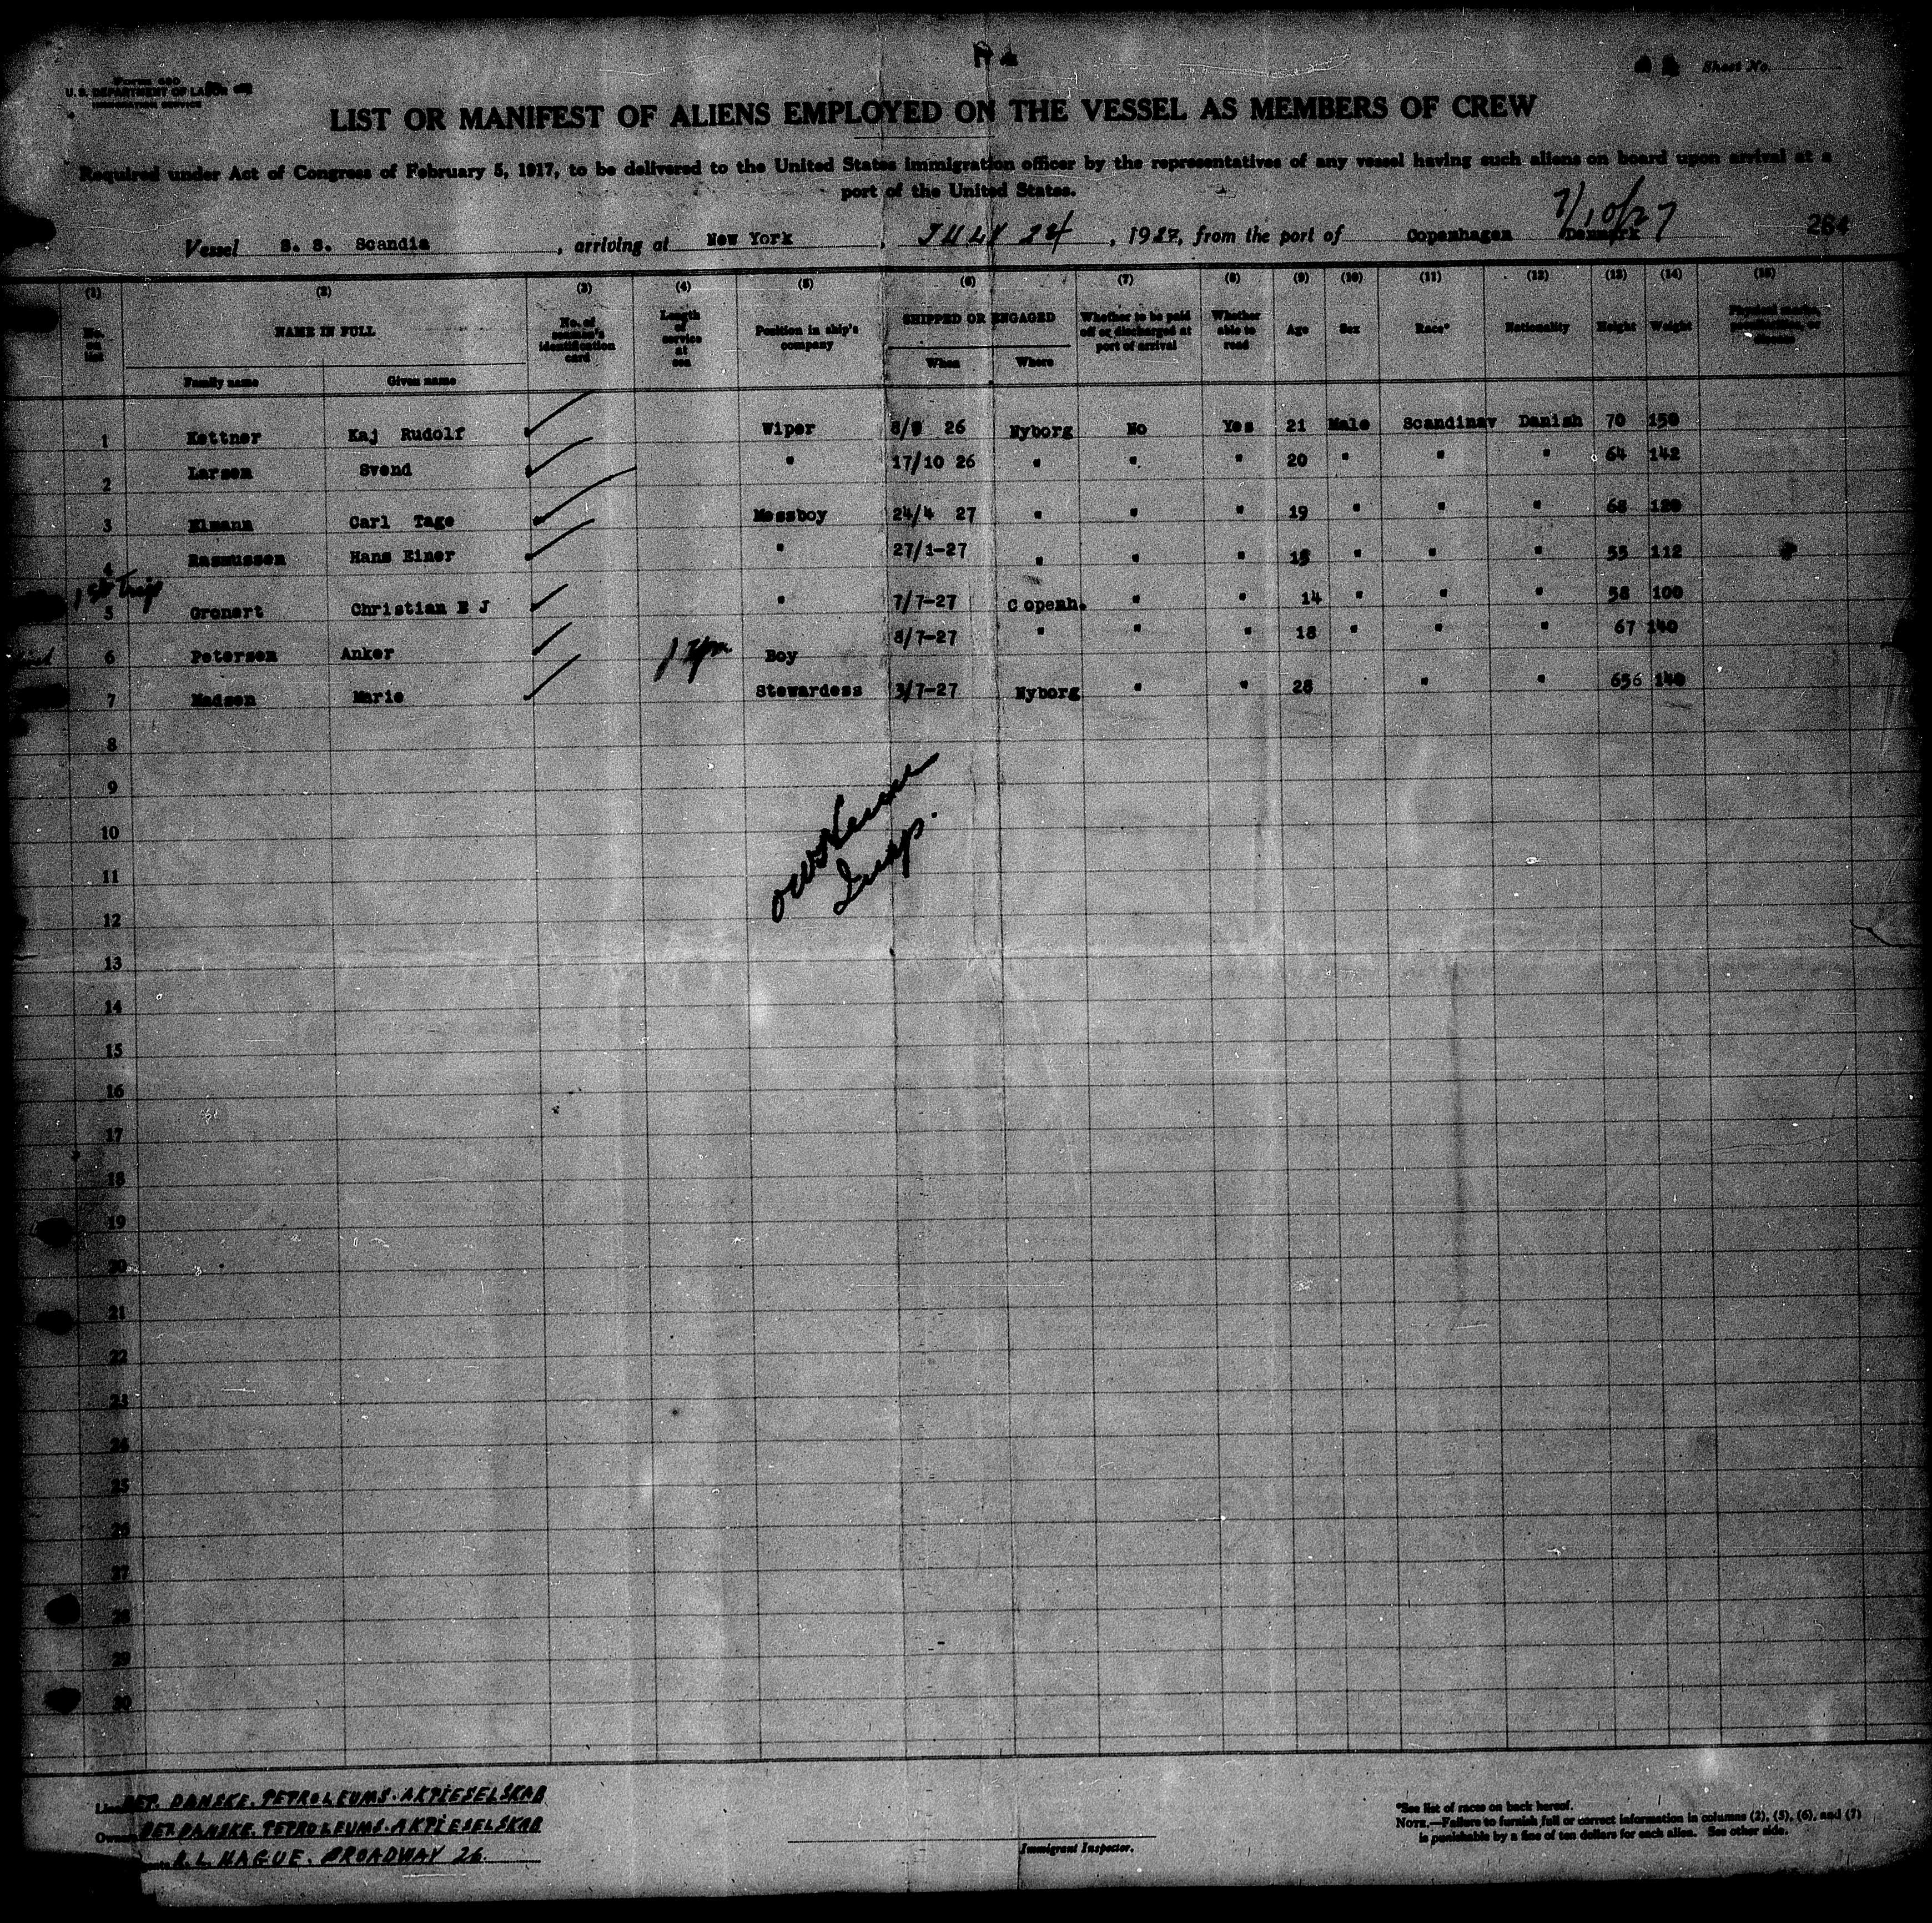 Form 680
U. S. DEPARTMENT OF LABOR
IMMIGRATION SERVICE
Sheet No.
LIST OR MANIFEST OF ALIENS EMPLOYED ON THE VESSEL AS MEMBERS OF CREW
Required under Act of Congress of February 5, 1917, to be delivered to the United States immigration officer by the representatives of any vessel having such aliens on board upon arrival at a
port of the United States.
7/10/27
Vessel S. S. Scandia, arriving at New York, JULY 24, 1927, from the port of Copenhagen Denmark 264
(1) (2) (3) (4) (5) (6) (7) (8) (9) (10) (11) (12) (13) (14) (15)
No. on list NAME IN FULL Family name Given name No. of seaman's identification card Length of service at sea Position in ship's company SHIPPED OR ENGAGED When Where Whether to be paid off or discharged at port of arrival Whether able to read Age Sex Race* Nationality Height Weight Physical marks, peculiarities, or disease
1 Kettner Kaj Rudolf Wiper 8/9 26 Nyborg No Yes 21 Male Scandinav Danish 70 150
2 Larsen Svend " 17/10 26 " " " 20 " " " 64 142
3 Elmann Carl Tage Messboy 24/4 27 " " " 19 " " " 68 120
4 Rasmussen Hans Einer " 27/1-27 " " " 15 " " " 55 112
1st Trip
5 Gronert Christian E J " 7/7-27 Copenh. " " 14 " " " 58 100
6 Petersen Anker Boy 8/7-27 " " " 18 " " " 67 140
7 Madsen Marie Stewardess 3/7-27 Nyborg " " 28 " " 656 140
8
9
10
11
12
13
14
15
16
17
18
19
20
21
22
23
24
25
26
27
28
29
30
Insp.
Line DET. DANSKE. PETROLEUMS. AKTIESELSKAB
Owners DET DANSKE. PETROLEUMS. AKTIESELSKAB
H. L. HAGUE. BROADWAY 26.
Immigrant Inspector.
*See list of races on back hereof.
NOTE.—Failure to furnish full or correct information in columns (2), (5), (6), and (7)
is punishable by a fine of ten dollars for each alien. See other side.